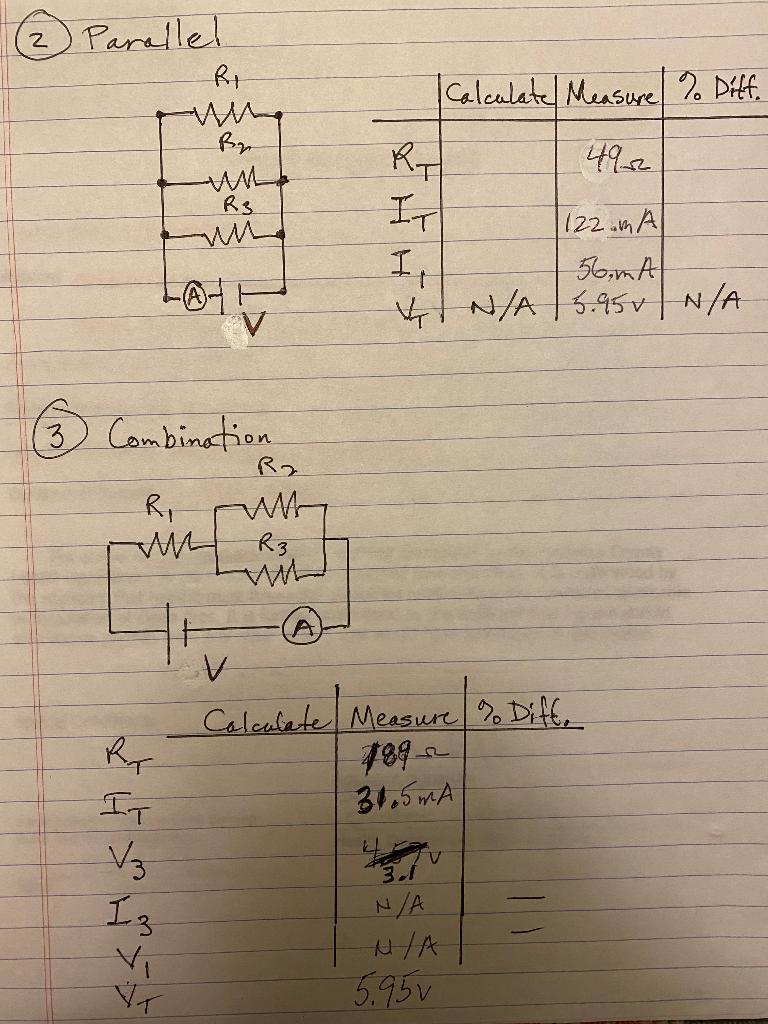 2 Parallel
R1
R2
R3
A
V
Calculate Measure % Diff.
RT 49Ω
IT 122.mA
I1 56.mA
VT N/A 5.95v N/A
3 Combination
R2
R1
R3
A
V
Calculate Measure % Diff.
RT 189Ω
IT 31.5mA
V3 v
3.1
I3 N/A —
V1 N/A —
VT 5.95v